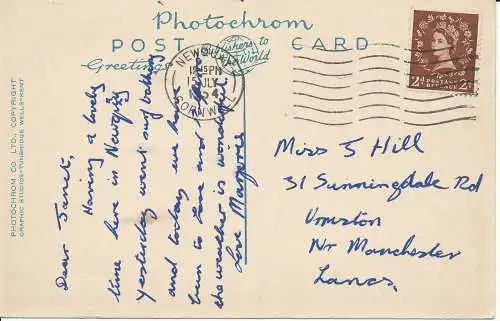 Photochrom
POST CARD
Greetings
Publishers to
the World
NEWQUAY
15 JLY
CORNWALL
POSTAGE
REVENUE
2D 2D
PHOTOCHROM CO. LTD., COPYRIGHT
GRAPHIC STUDIOS • TUNBRIDGE WELLS • KENT
Dear Janet,
Having a lovely
time here in Newquay
yesterday went
and today we have
been to
the weather is wonderful
Love Marjorie
Miss J Hill
31 Sunningdale Rd
Urmston
Nr Manchester
Lancs.